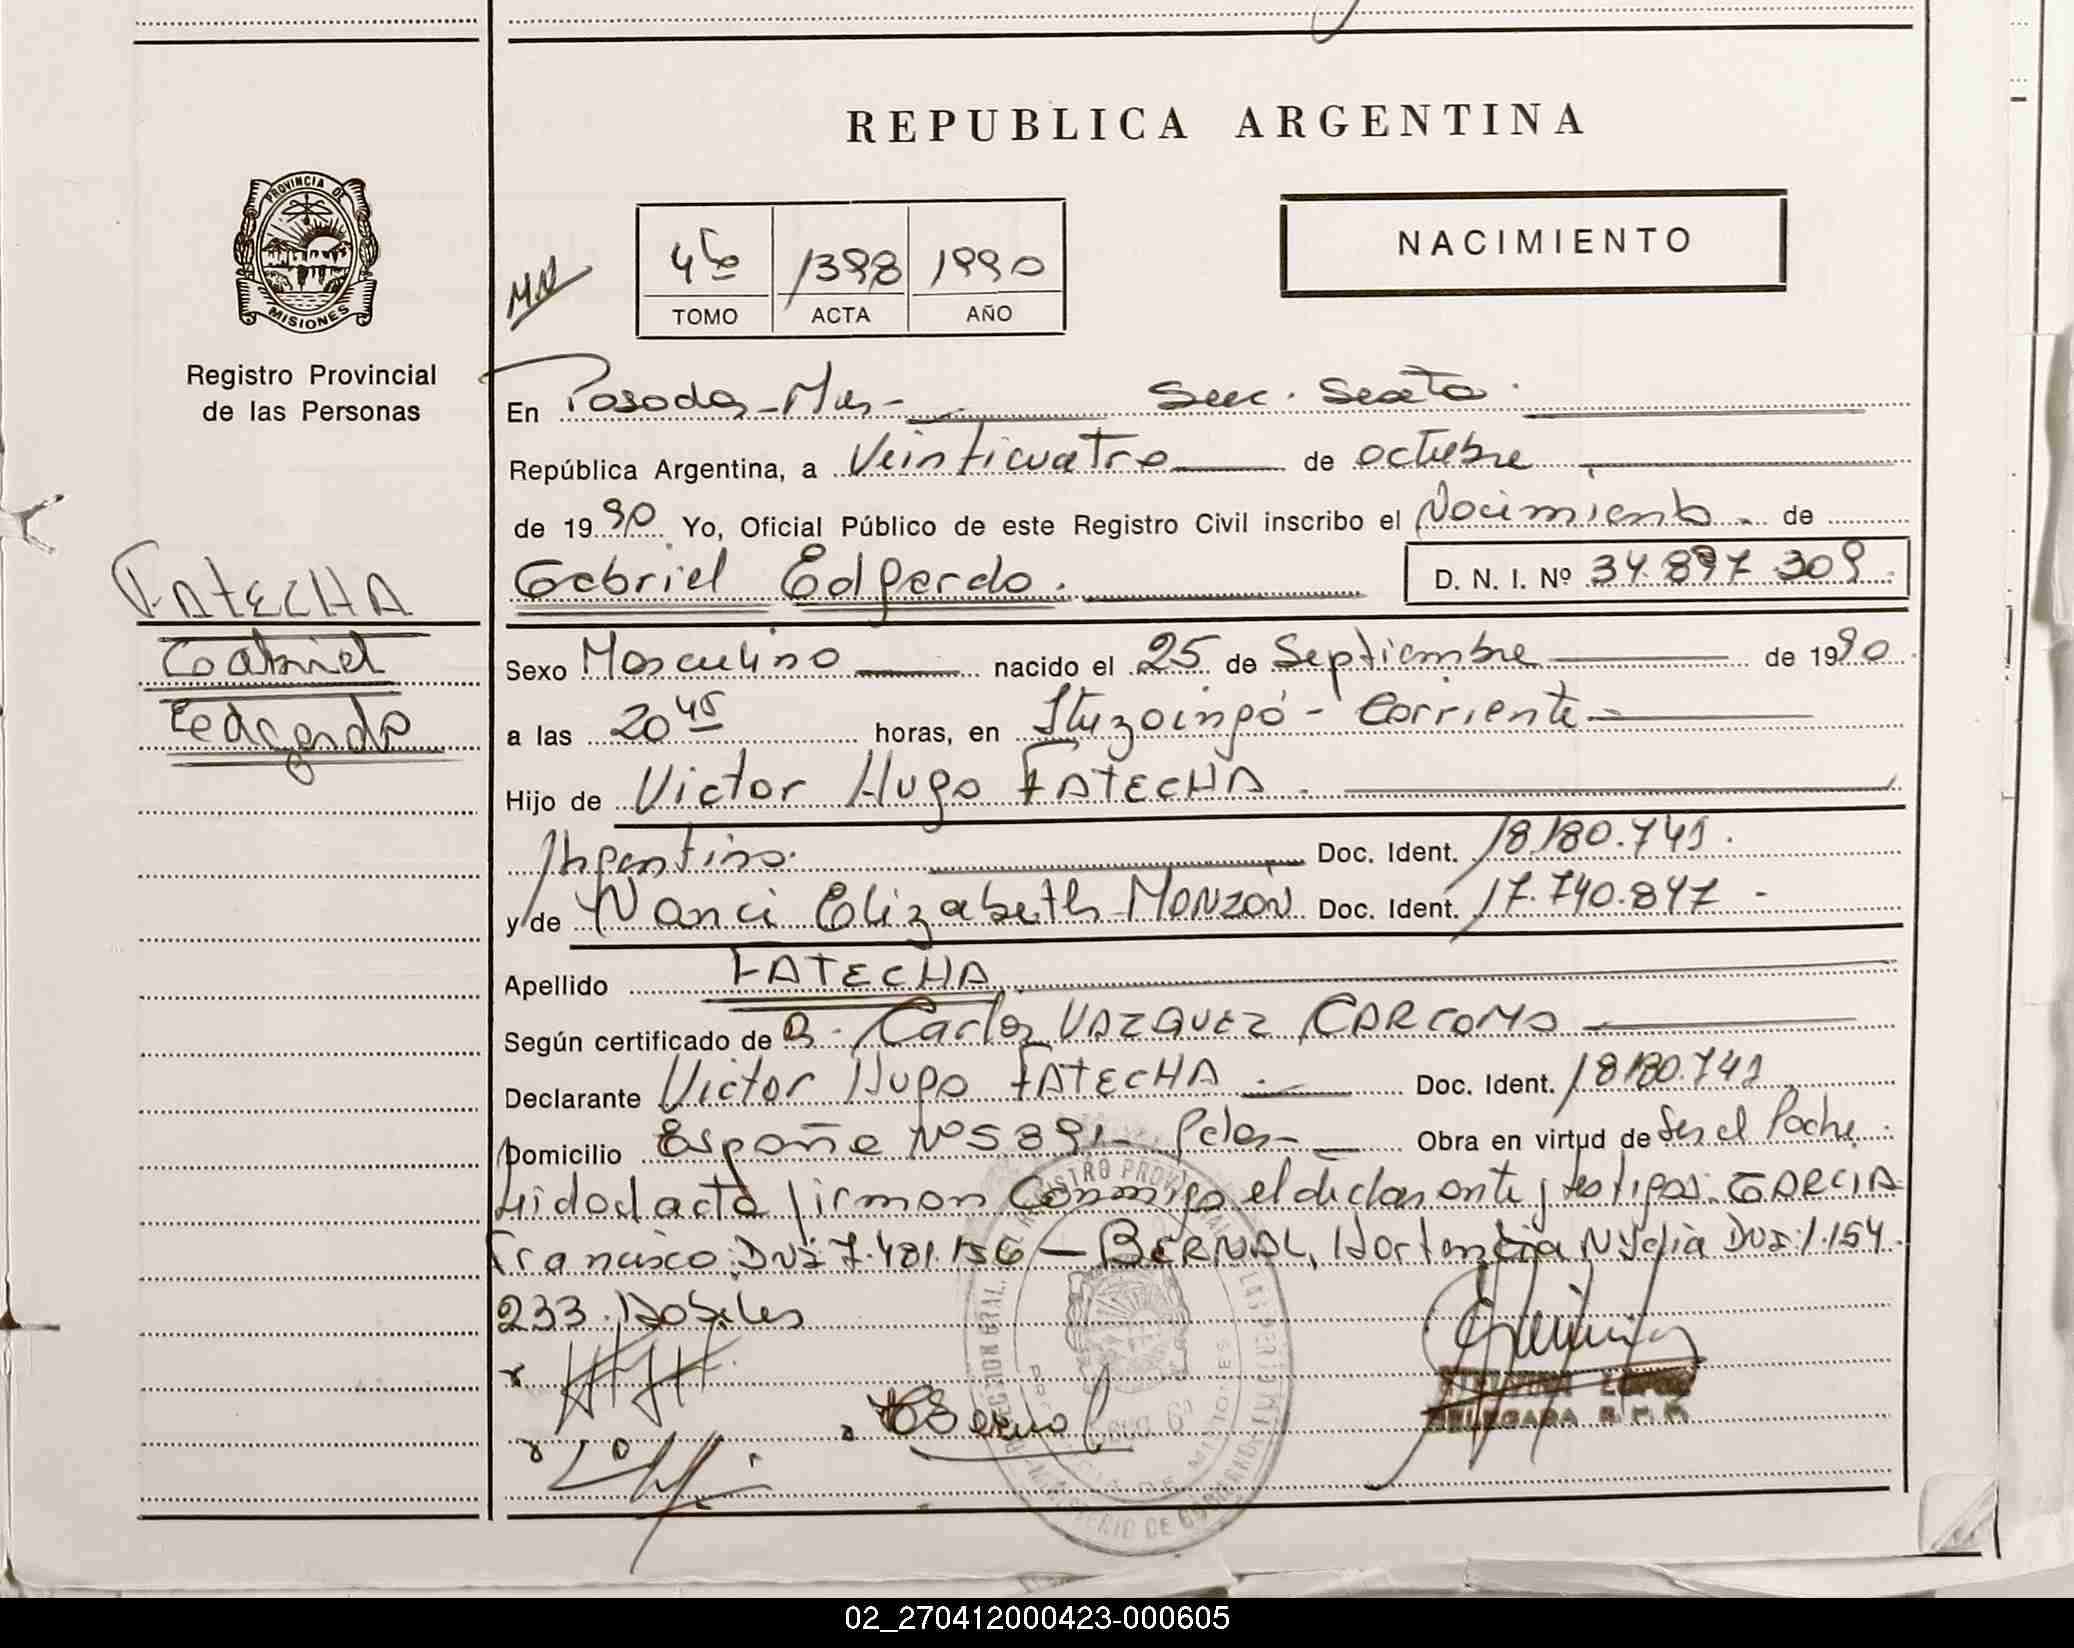 REPUBLICA ARGENTINA
PROVINCIA DE
MISIONES
Registro Provincial
de las Personas
NACIMIENTO
4to 1398 1990
TOMO ACTA AÑO
En Posadas - Mnes - Secc. Sexta.
República Argentina, a Veinticuatro de octubre
de 1990 Yo, Oficial Público de este Registro Civil inscribo el Nacimiento de
Gabriel Edgardo. D. N. I. Nº 34.897.309
FATECHA
Gabriel
Edgardo
Sexo Masculino nacido el 25 de Septiembre de 1990
a las 20 45 horas, en Ituzaingó - Corriente
Hijo de Victor Hugo FATECHA.
Argentino. Doc. Ident. 18.180.741.
y de Nanci Elizabeth MONZÓN Doc. Ident. 17.740.847 -
Apellido FATECHA
Según certificado de Carlos VAZQUEZ CARCOMO
Declarante Victor Hugo FATECHA. Doc. Ident. 18.180.741
Domicilio España Nº 5891 - Pdas - Obra en virtud de Ser el Padre.
Leido el acta firman conmigo el declarante y testigos: GARCIA
Francisco: DNI 7.481.156 - BERNAL, Hortencia Nydia DNI: 1.154.
233. Habiles
HBernal
REGISTRO PROVINCIAL DE LAS PERSONAS
DIRECCION GRAL.
MINISTERIO DE GOBIERNO
PROVINCIA DE MISIONES
DELEGADA R.P.P.
02_270412000423-000605